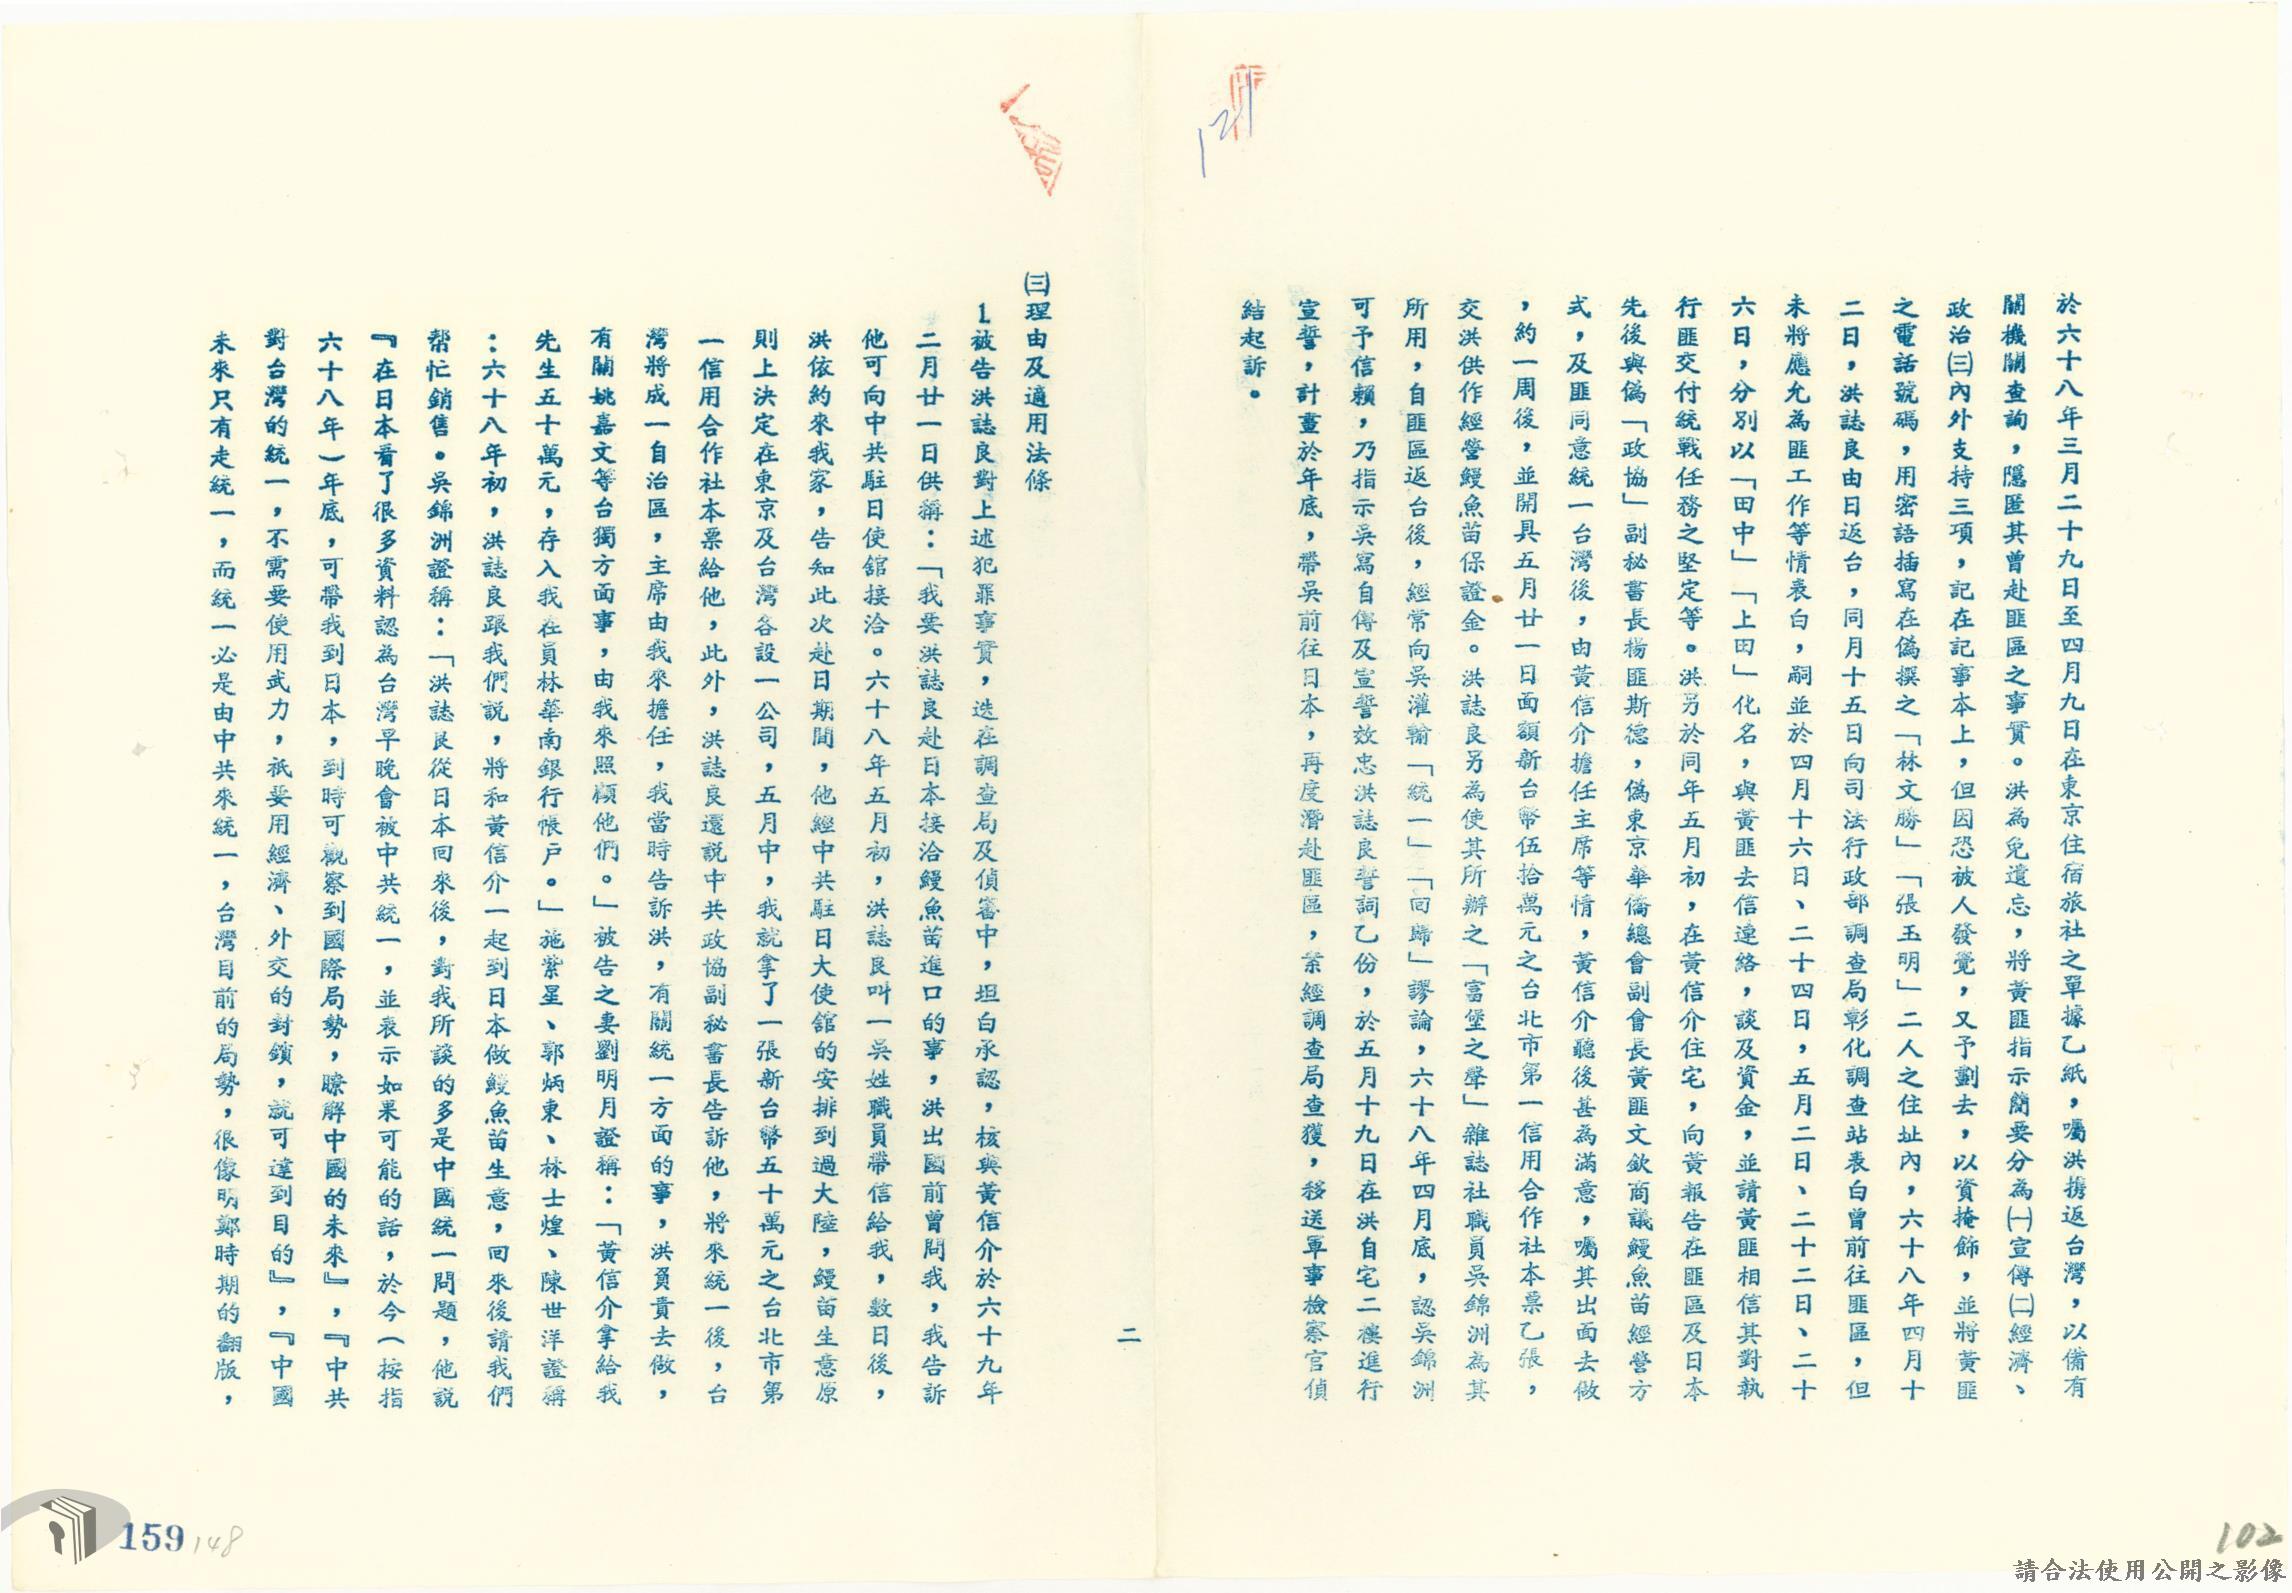 於六十八年三月二十九日至四月九日在東京住宿旅社之單據乙紙，囑洪携返台灣，以備有
關機關查詢，隱匿其曾赴匪區之事實。洪為免遺忘，將黃匪指示簡要分為㈠宣傳㈡經濟、
政治㈢內外支持三項，記在記事本上，但因恐被人發覺，又予劃去，以資掩飾，並將黃匪
之電話號碼，用密語插寫在偽撰之「林文勝」「張玉明」二人之住址內，六十八年四月十
二日，洪誌良由日返台，同月十五日向司法行政部調查局彰化調查站表白曾前往匪區，但
未將應允為匪工作等情表白，嗣並於四月十六日、二十四日，五月二日、二十二日、二十
六日，分別以「田中」「上田」化名，與黃匪去信連絡，談及資金，並請黃匪相信其對執
行匪交付統戰任務之堅定等。洪另於同年五月初，在黃信介住宅，向黃報告在匪區及日本
先後與偽「政協」副秘書長楊匪斯德，偽東京華僑總會副會長黃匪文欽商議鰻魚苗經營方
式，及匪同意統一台灣後，由黃信介擔任主席等情，黃信介聽後甚為滿意，囑其出面去做
，約一周後，並開具五月廿一日面額新台幣伍拾萬元之台北市第一信用合作社本票乙張，
交洪供作經營鰻魚苗保證金。洪誌良另為使其所辦之「富堡之聲」雜誌社職員吳錦洲為其
所用，自匪區返台後，經常向吳灌輸「統一」「回歸」謬論，六十八年四月底，認吳錦洲
可予信賴，乃指示吳寫自傳及宣誓效忠洪誌良誓詞乙份，於五月十九日在洪自宅二樓進行
宣誓，計畫於年底，帶吳前往日本，再度潛赴匪區，案經調查局查獲，移送軍事檢察官偵
結起訴。
二
㈢理由及適用法條
1.被告洪誌良對上述犯罪事實，迭在調查局及偵審中，坦白承認，核與黃信介於六十九年
二月廿一日供稱：「我要洪誌良赴日本接洽鰻魚苗進口的事，洪出國前曾問我，我告訴
他可向中共駐日使舘接洽。六十八年五月初，洪誌良叫一吳姓職員帶信給我，數日後，
洪依約來我家，告知此次赴日期間，他經中共駐日大使舘的安排到過大陸，鰻苗生意原
則上決定在東京及台灣各設一公司，五月中，我就拿了一張新台幣五十萬元之台北市第
一信用合作社本票給他，此外，洪誌良還說中共政協副秘書長告訴他，將來統一後，台
灣將成一自治區，主席由我來擔任，我當時告訴洪，有關統一方面的事，洪負責去做，
有關姚嘉文等台獨方面事，由我來照顧他們。」被告之妻劉明月證稱：「黃信介拿給我
先生五十萬元，存入我在員林華南銀行帳戶。」施紫星、郭炳東、林士煌、陳世洋證稱
：六十八年初，洪誌良跟我們說，將和黃信介一起到日本做鰻魚苗生意，回來後請我們
幫忙銷售。吳錦洲證稱：「洪誌良從日本回來後，對我所談的多是中國統一問題，他說
『在日本看了很多資料認為台灣早晚會被中共統一，並表示如果可能的話，於今（按指
六十八年）年底，可帶我到日本，到時可觀察到國際局勢，瞭解中國的未來』，『中共
對台灣的統一，不需要使用武力，祇要用經濟、外交的封鎖，就可達到目的』，『中國
未來只有走統一，而統一必是由中共來統一，台灣目前的局勢，很像明鄭時期的翻版，
121
159
148
102
請合法使用公開之影像